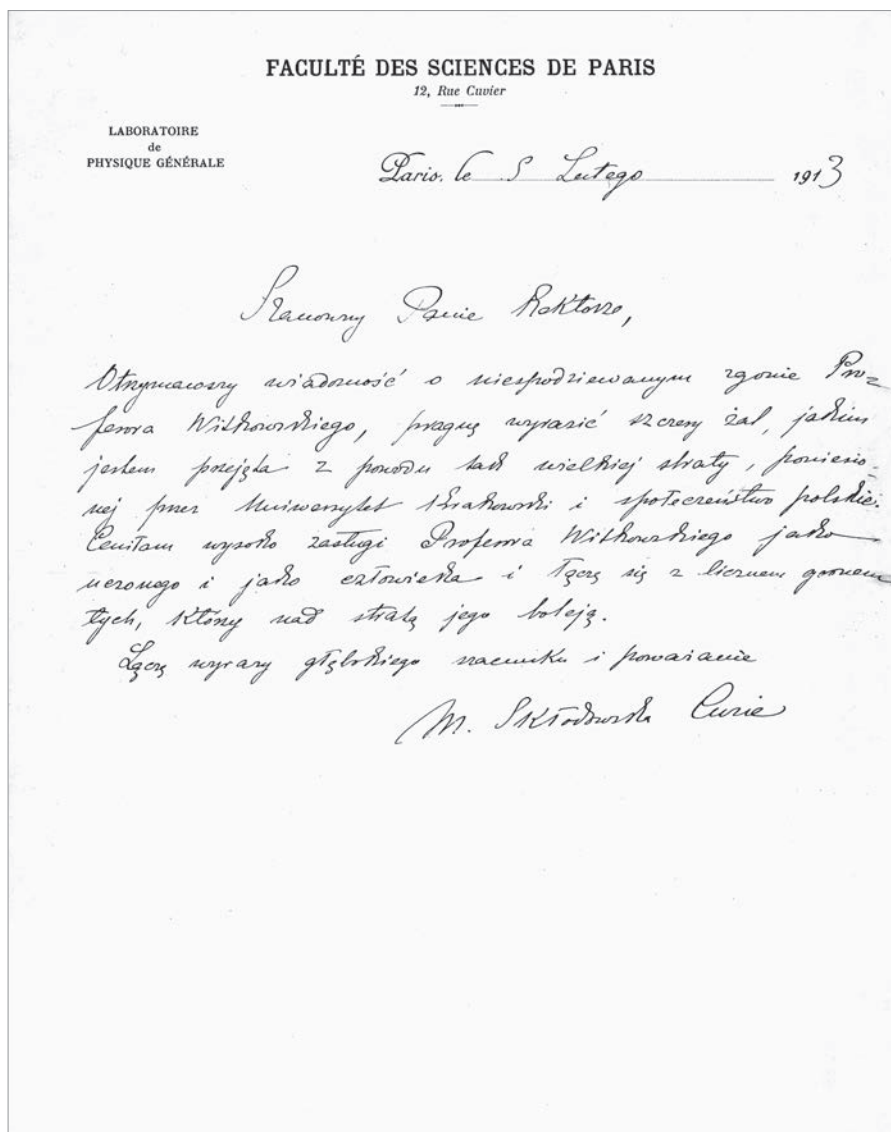 FACULTÉ DES SCIENCES DE PARIS
12, Rue Cuvier
LABORATOIRE
de
PHYSIQUE GÉNÉRALE
Paris, le 5 Lutego 1913
Szanowny Panie Rektorze,
Otrzymawszy wiadomość o niespodziewanym zgonie Pro-
fesora Witkowskiego, pragnę wyrazić szczery żal, jakim
jestem przejęta z powodu tak wielkiej straty, poniesio-
nej przez Uniwersytet Krakowski i społeczeństwo polskie.
Ceniłam wysoko zasługi Profesora Witkowskiego jako
uczonego i jako człowieka i łączę się z licznem gronem
tych, którzy nad stratą jego boleją.
Łączę wyrazy głębokiego szacunku i poważania
M. Skłodowska Curie